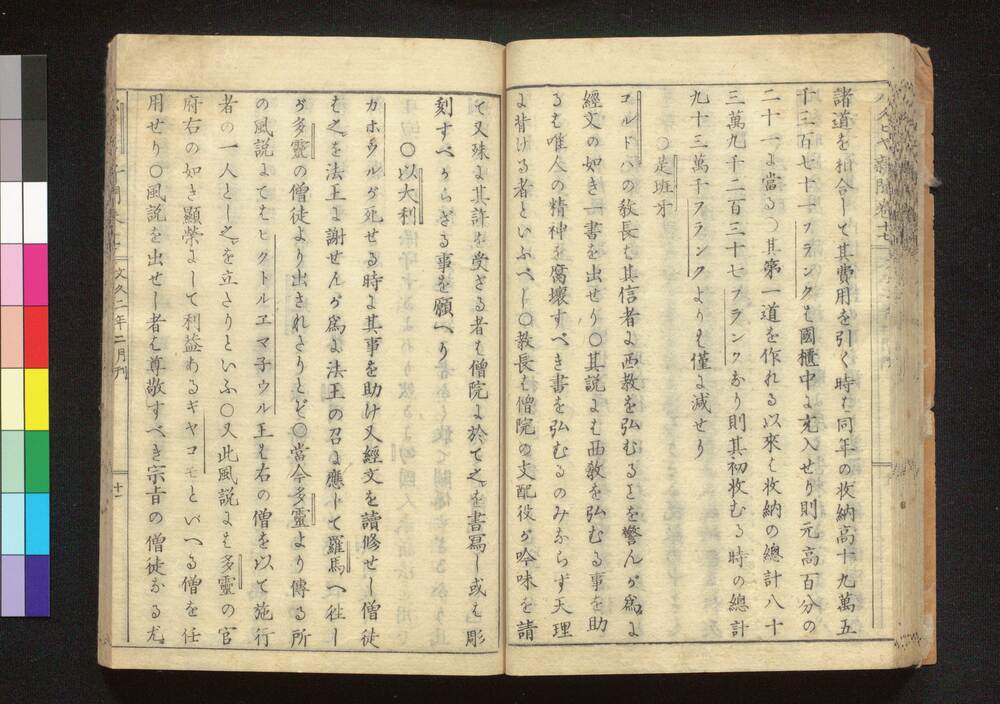 諸道を相合して其費用を引く時も同年の收納高十九萬五
千三百七十一フランクも國櫃中よ充入せり則元高百分の
二十一よ當る〇其第一道を作れる以來も收納の總計八十
三萬九千二百三十七フランクあり則其初收むる時の總計
九十三萬千フランクよりも僅よ減せり
〇是班牙
コルドバの敎長も其信者よ西敎を弘むるを警んが爲よ
經文の如き一書を出せり〇其說よも西敎を弘むる事を助
るも唯人の精神を腐壞すべき書を弘むるのみならず天理
よ背ける者といふべし〇敎長も僧院の支配役が吟味を請
て又殊よ其許を受ざる者も僧院よ於て之を書寫し或も彫
刻すべからざる事を願へり
〇以太利
カホウルが死せる時よ其事を助け又經文を讀修せし僧徒
も之を法王よ謝せんが爲よ法王の召よ應じて羅馬へ徃し
が多靈の僧徒より出されたりとぞ〇當今多靈より傳る所
の風說よてもヒクトルエマ子ウル王も右の僧を以て施行
者の一人とし之を立たりといふ〇又此風說よも多靈の官
府右の如き顯榮よして利益あるギヤコモといへる僧を任
用せり〇風說を出せし者も尊敬すべき宗旨の僧徒なる尤
文久二年二月刊
十一